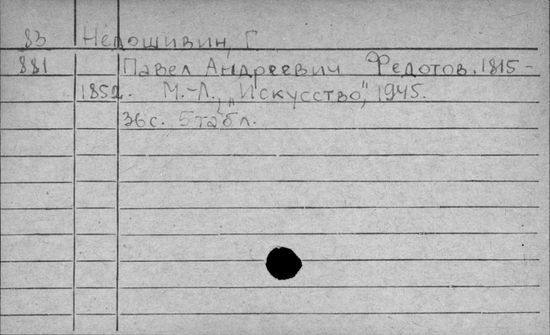 83 Недошивин, Г
881 Павел Андреевич Федотов. 1815-
1852. М.-Л., „Искусство", 1945.
36с. 5табл.